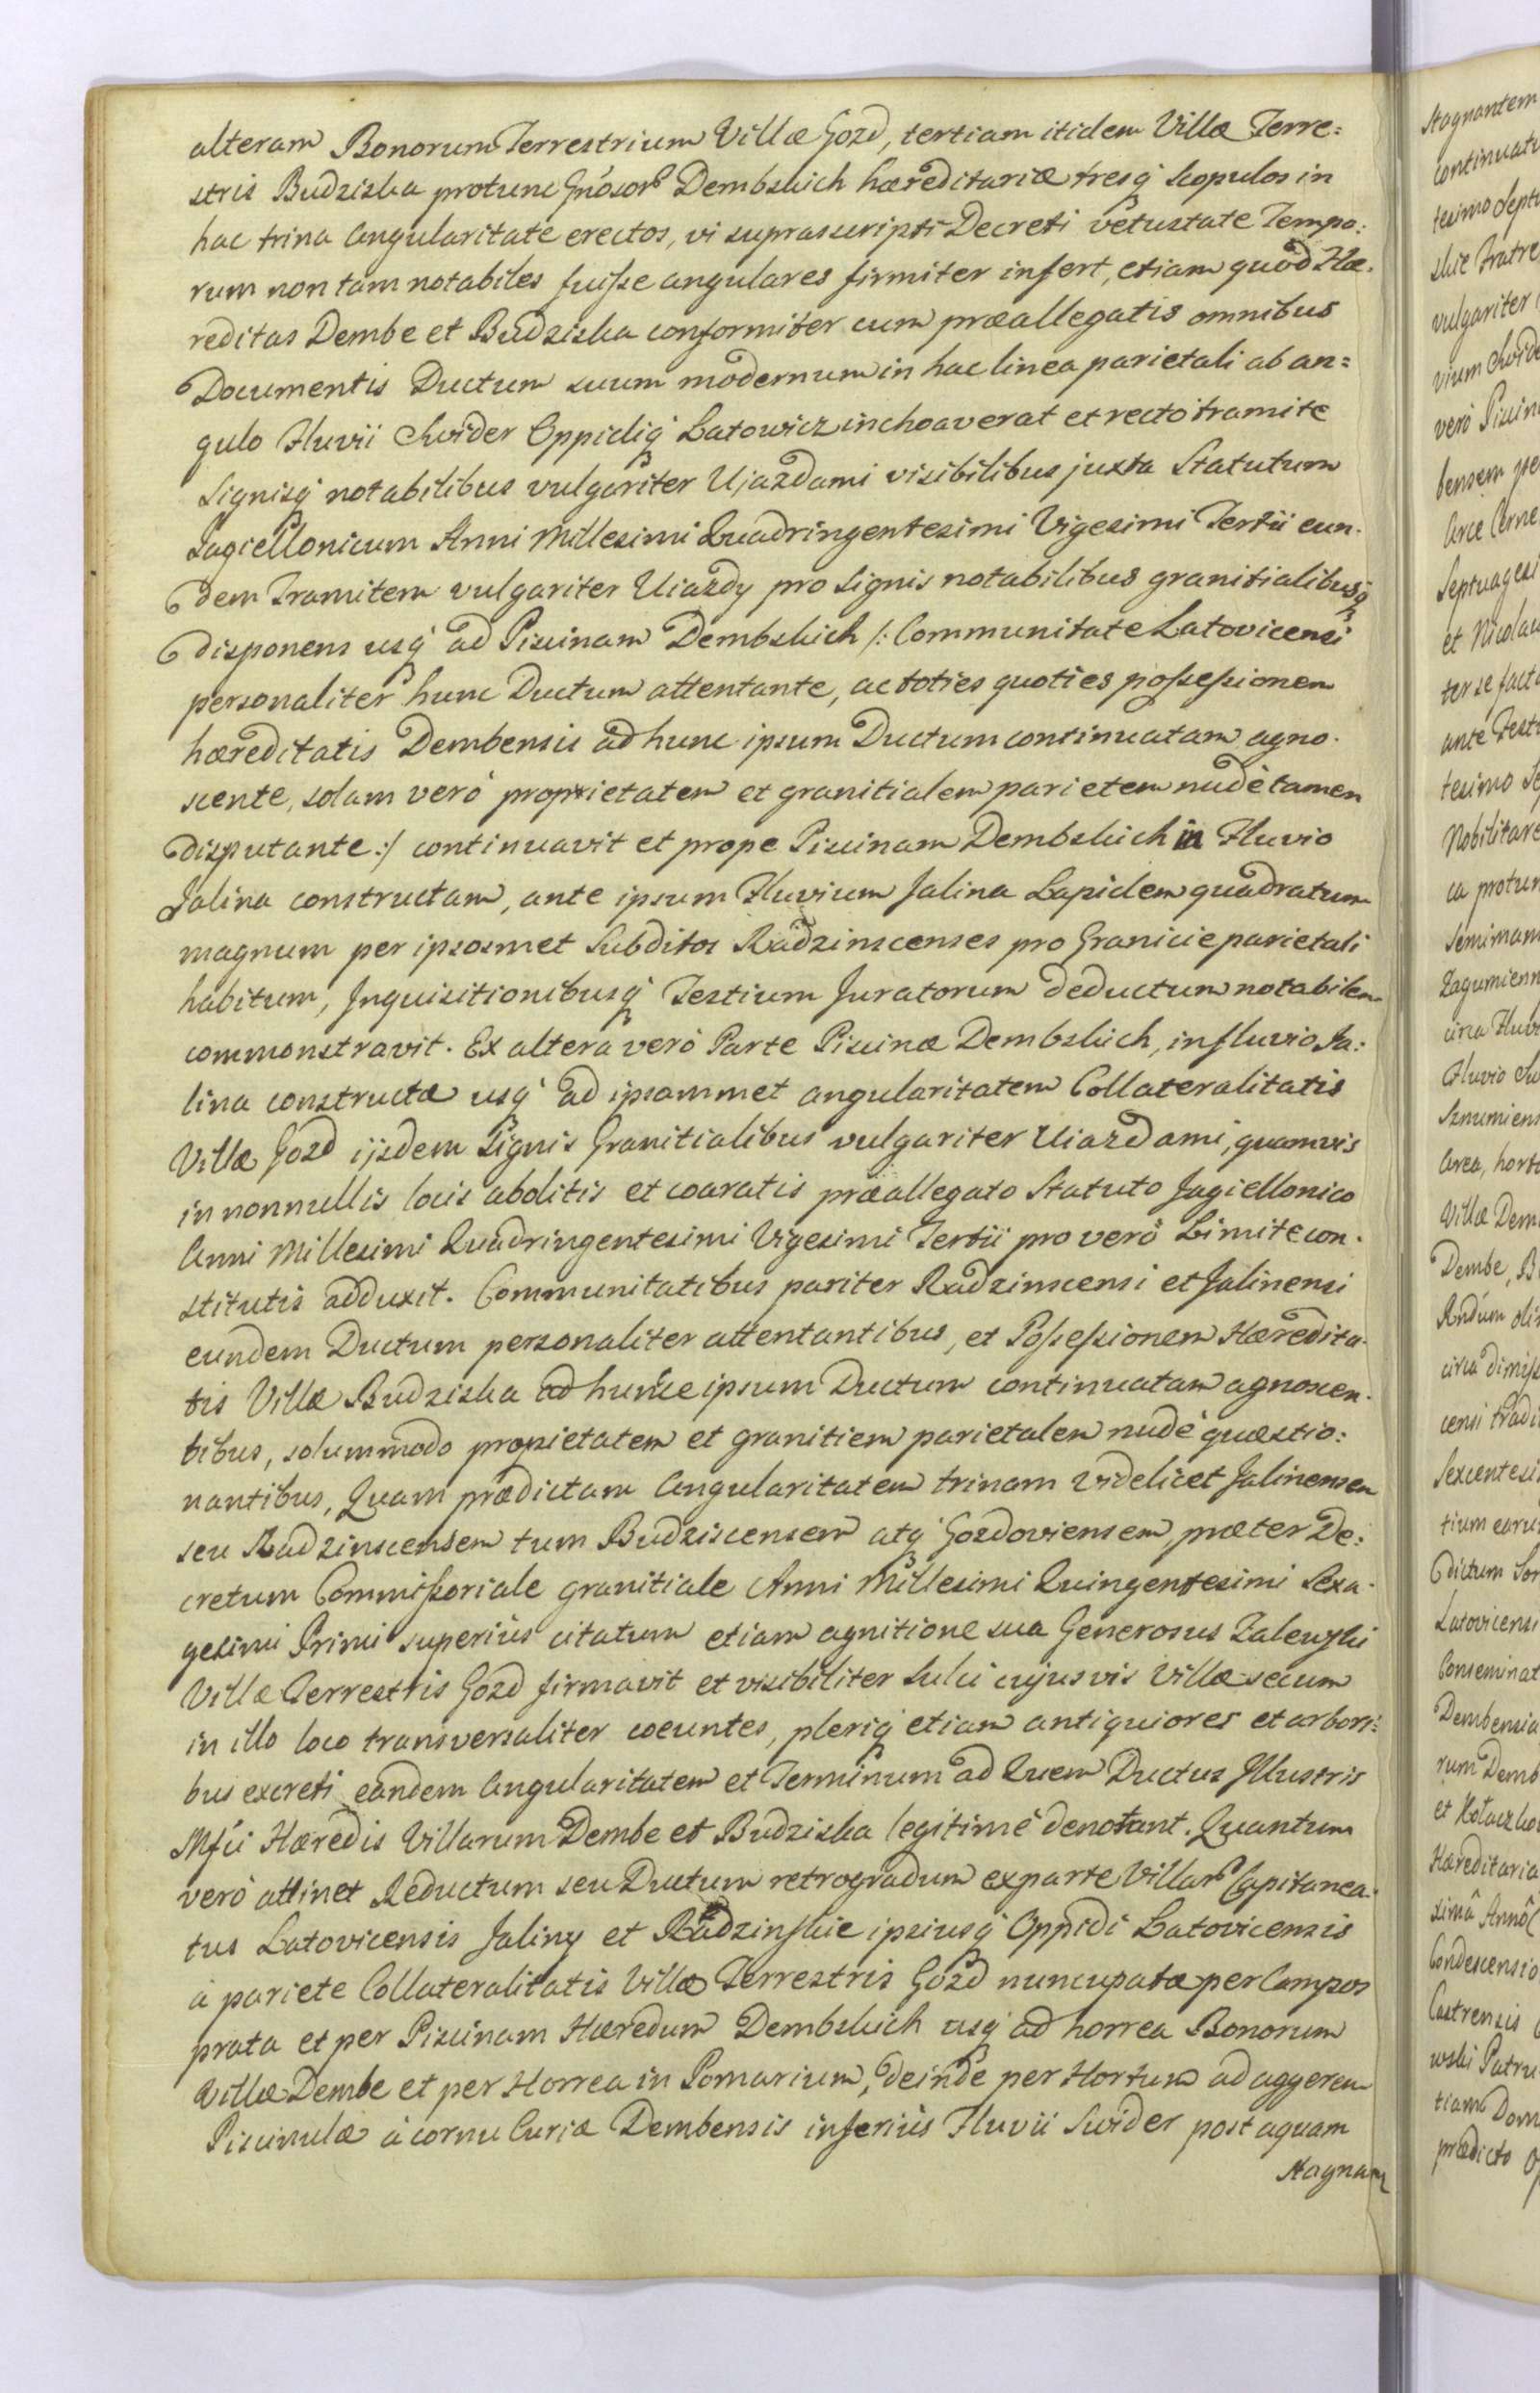 alteram Bonorum Terrestrium Villæ Gozd, tertiam itidem Villæ Terre:
stris Budziska protunc Gnosor Dembskich hæreditariæ tresq scopulos in
hac trina angularitate erectos, vi suprascripti Decreti vetustate Tempo:
rum non tam notabiles fuisse angulares firmiter infert, etiam quod Hæ-
reditas Dembe et Budziska conformiter cum præallegatis omnibus
Documentis Ductum suum modernum in hac linea parietali ab an=
gulo Fluvii Swider Oppidiq Latowicz inchoaverat et recto tramite
signisq notabilibus vulgariter Ujazdami visibilibus juxta Statutum
Jagiellonicum Anni Millesimi Quadringentesimi Vigesimi Tertii eun-
dem Tramitem vulgariter Uiazdy pro signis notabilibus granitialibusq
disponens usq ad Piscinam Dembskich /: Communitate Latovicensi
personaliter hunc Ductum attentante, ac toties quoties possessionem
hæreditatis Dembensis ad hunc ipsum Ductum continuatam agno-
scente, solam verò proprietatem et granitialem parietem nudè tamen
disputante :/ continuavit et prope Piscinam Dembskich in Fluvio
Jalina constructam, ante ipsum Fluvium Jalina Lapidem quadratum
magnum per ipsosmet Subditos Radzinscenses pro Granicie parietali
habitum, Inquisitionibusq Testium Juratorum deductum notabilem
commonstravit. Ex altera verò Parte Piscinæ Dembskich, in fluvio Ja:
lina constructæ usq ad ipsammet angularitatem Collateralitatis
Villæ Gozd iisdem Signis Granitialibus vulgariter Uiazdami, quamvis
in nonnullis locis abolitis et coaratis præallegato Statuto Jagiellonico
Anni Millesimi Quadringentesimi Vigesimi Tertii pro verò Limite con-
stitutis adduxit. Communitatibus pariter Radzinscensi et Jalinensi
eundem Ductum personaliter attentantibus, et Possessionem Hæredita-
tis Villæ Budziska ad huncce ipsum Ductum continuatam agnoscen-
tibus, solummodo proprietatem et granitiem parietalem nudè quæstio:
nantibus, Quam prædictam Angularitatem trinam videlicet Jalinensem
seu Radzinscensem tum Budziscensem atq Gozdoviensem, præter De:
cretum Commissoriale granitiale Anni Millesimi Quingentesimi Sexa-
gesimi Primi superiùs citatum etiam agnitione sua Generosus Zalewski
Villæ Terrestris Gozd firmavit et visibiliter sulci cujusvis Villæ secum
in illo loco transversaliter coeuntes, pleriq etiam antiquiores et arbori:
bus excreti eandem Angularitatem et Terminum ad Quem Ductus Illustris
Mfci Hæredis Villarum Dembe et Budziska legitimè denotant. Quantum
verò attinet Reductum seu Ductum retrogradum ex parte Villar Capitanea-
tus Latovicensis Jaliny et Radzinskie ipsiusq Oppidi Latovicensis
à pariete Collateralitatis Villæ Terrestris Gozd nuncupatæ per Campos
prata et per Piscinam Hæredum Dembskich usq ad horrea Bonorum
Villæ Dembe et per Horrea in Pomarium, deinde per Hortum ad aggerem
Piscinulæ à cornu Curiæ Dembensis inferiùs Fluvii Swider post aquam
stagnan
Stagnantem
continuatu
tesimo Septu
skie Fratre
vulgariter
vium Swide
verò Piscin
bensem pe
Arce Cerne
Septuagesi
et Nicolau
ter se facta
ante Festu
tesimo Se
Nobilitare
ca protun
Semimans
Zagumienn
circa Fluvi
Fluvio Sw
Area, hort
Villæ Dem
Dembe, B
circa dimiss
censi tradi
Sexcentesi
tium earu
dictum Sor
Latovicensi
Conseminat
Dembensia
rum Demb
Hæreditaria
Condescensio
Castrensis
wski Patru
tiam Dom
prædicto O